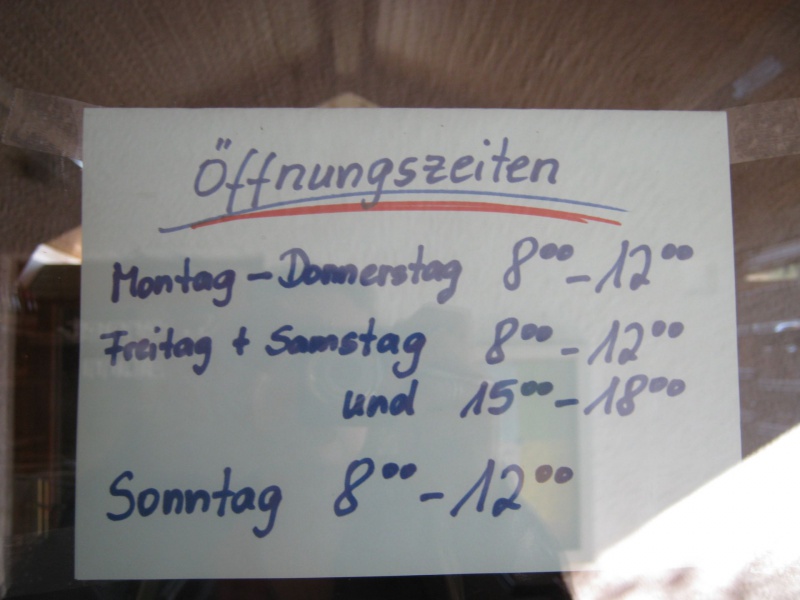 Öffnungszeiten
Montag - Donnerstag 8⁰⁰ - 12⁰⁰
Freitag + Samstag 8⁰⁰ - 12⁰⁰
und 15⁰⁰ - 18⁰⁰
Sonntag 8⁰⁰ - 12⁰⁰